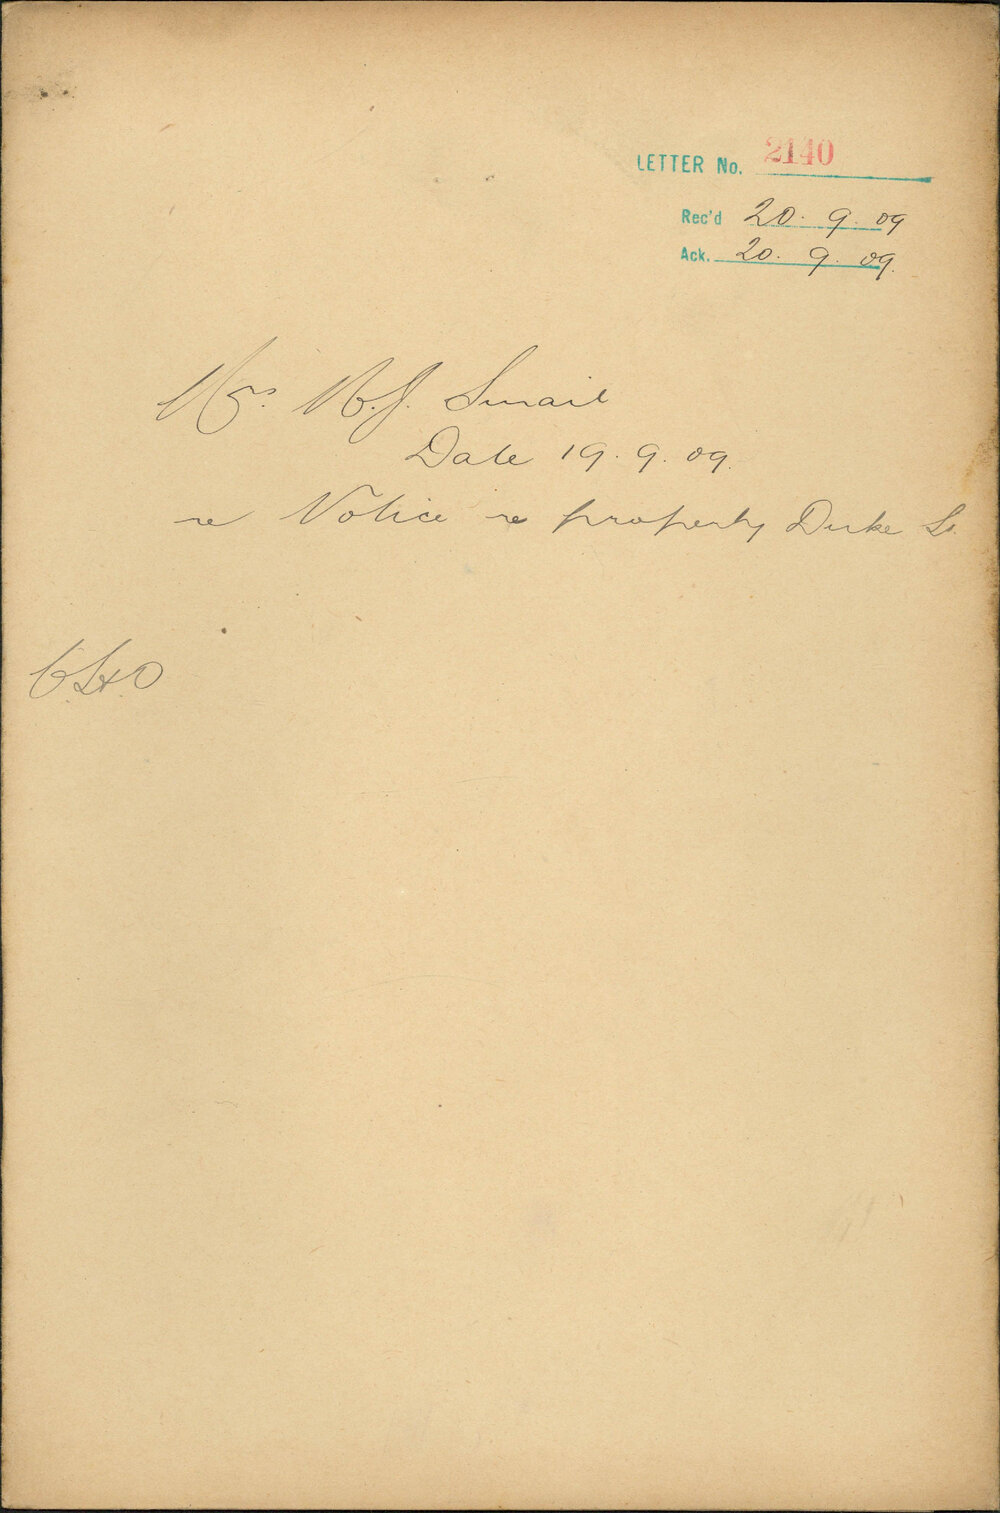 LETTER No. 2140
Rec'd 20. 9. 09
Ack. 20. 9. 09.
Smail
Date 19. 9. 09.
re Notice re property Duke St.